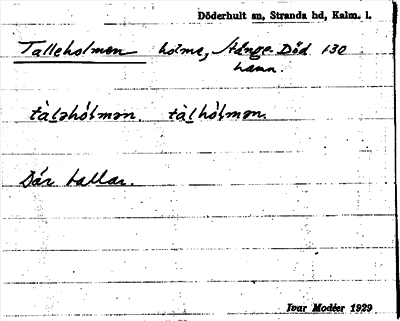 Döderhult sn, Stranda hd, Kalm. l.
Talleholmen holme, Stånge. Död 130
hamn.
tàləhól̥mən. tàl̥hól̥mən.
Där tallar.
Ivar Modéer 1929